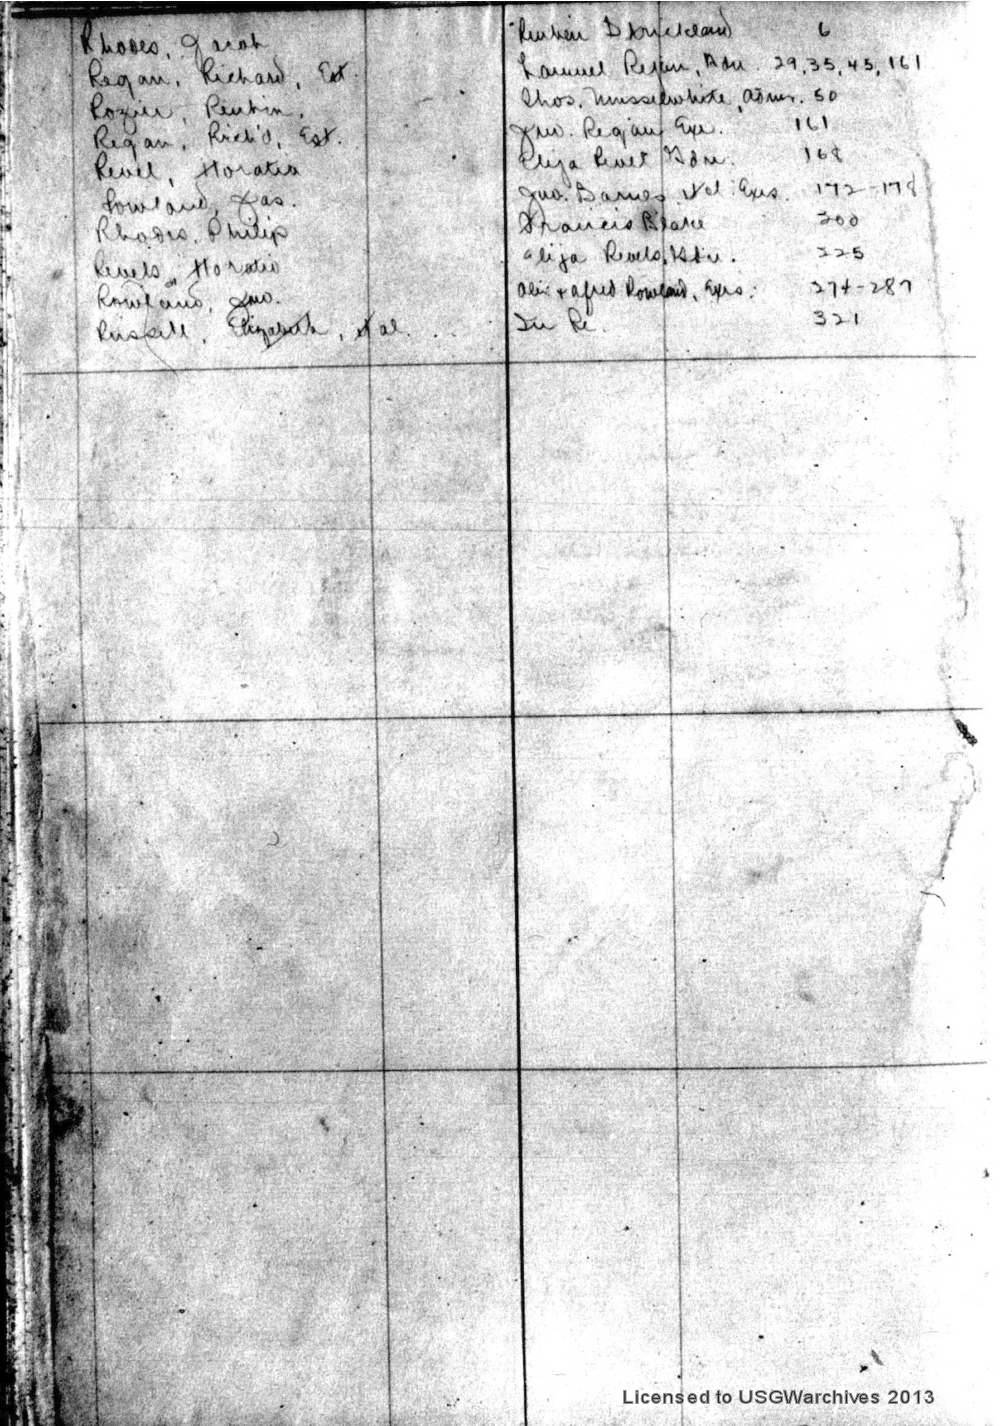 Rhodes, Jacob Reuben Strickland 6
Regan, Richard, Est. Regan, Adm. 29, 35, 45, 161
Rozier, Reubin, Thos. Musselwhite, Admr. 50
Regan, Rich'd, Est. Jno. Regan, Exr. 161
Revel, Horatio Eliza Revel Gdn. 168
Rowland, Jas. Jno. Barnes et al Exrs. 172-178
Rhodes, Philip Francis Blake 200
Revels, Horatio Eliza Revels, Gdn. 225
Rowland, Jno. Alex & Alfred Rowland, Exrs. 274-287
Russell, Elizabeth, et al. . . In Re. 321
Licensed to USGWarchives 2013